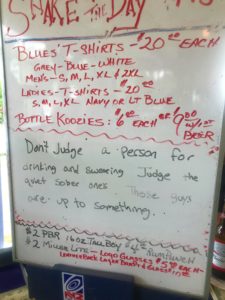 SHAKE OF THE DAY
BLUES T-SHIRTS - $20.00 EACH
GREY - BLUE - WHITE
MEN'S - S, M, L, XL & 2XL
LADIES - T-SHIRTS - 20.00
S, M, L, XL NAVY OR LT BLUE
BOTTLE KOOZIES: $6.00 EACH OR $9.50 W/
BEER
Don't Judge a person for
drinking and swearing. Judge the
quiet sober ones. Those guys
are up to something...
$2 PBR 16oz TALL BOY $4 RUMPUNCH
$2 MILLER LITE LOGO GLASSES $5.00 EACH -